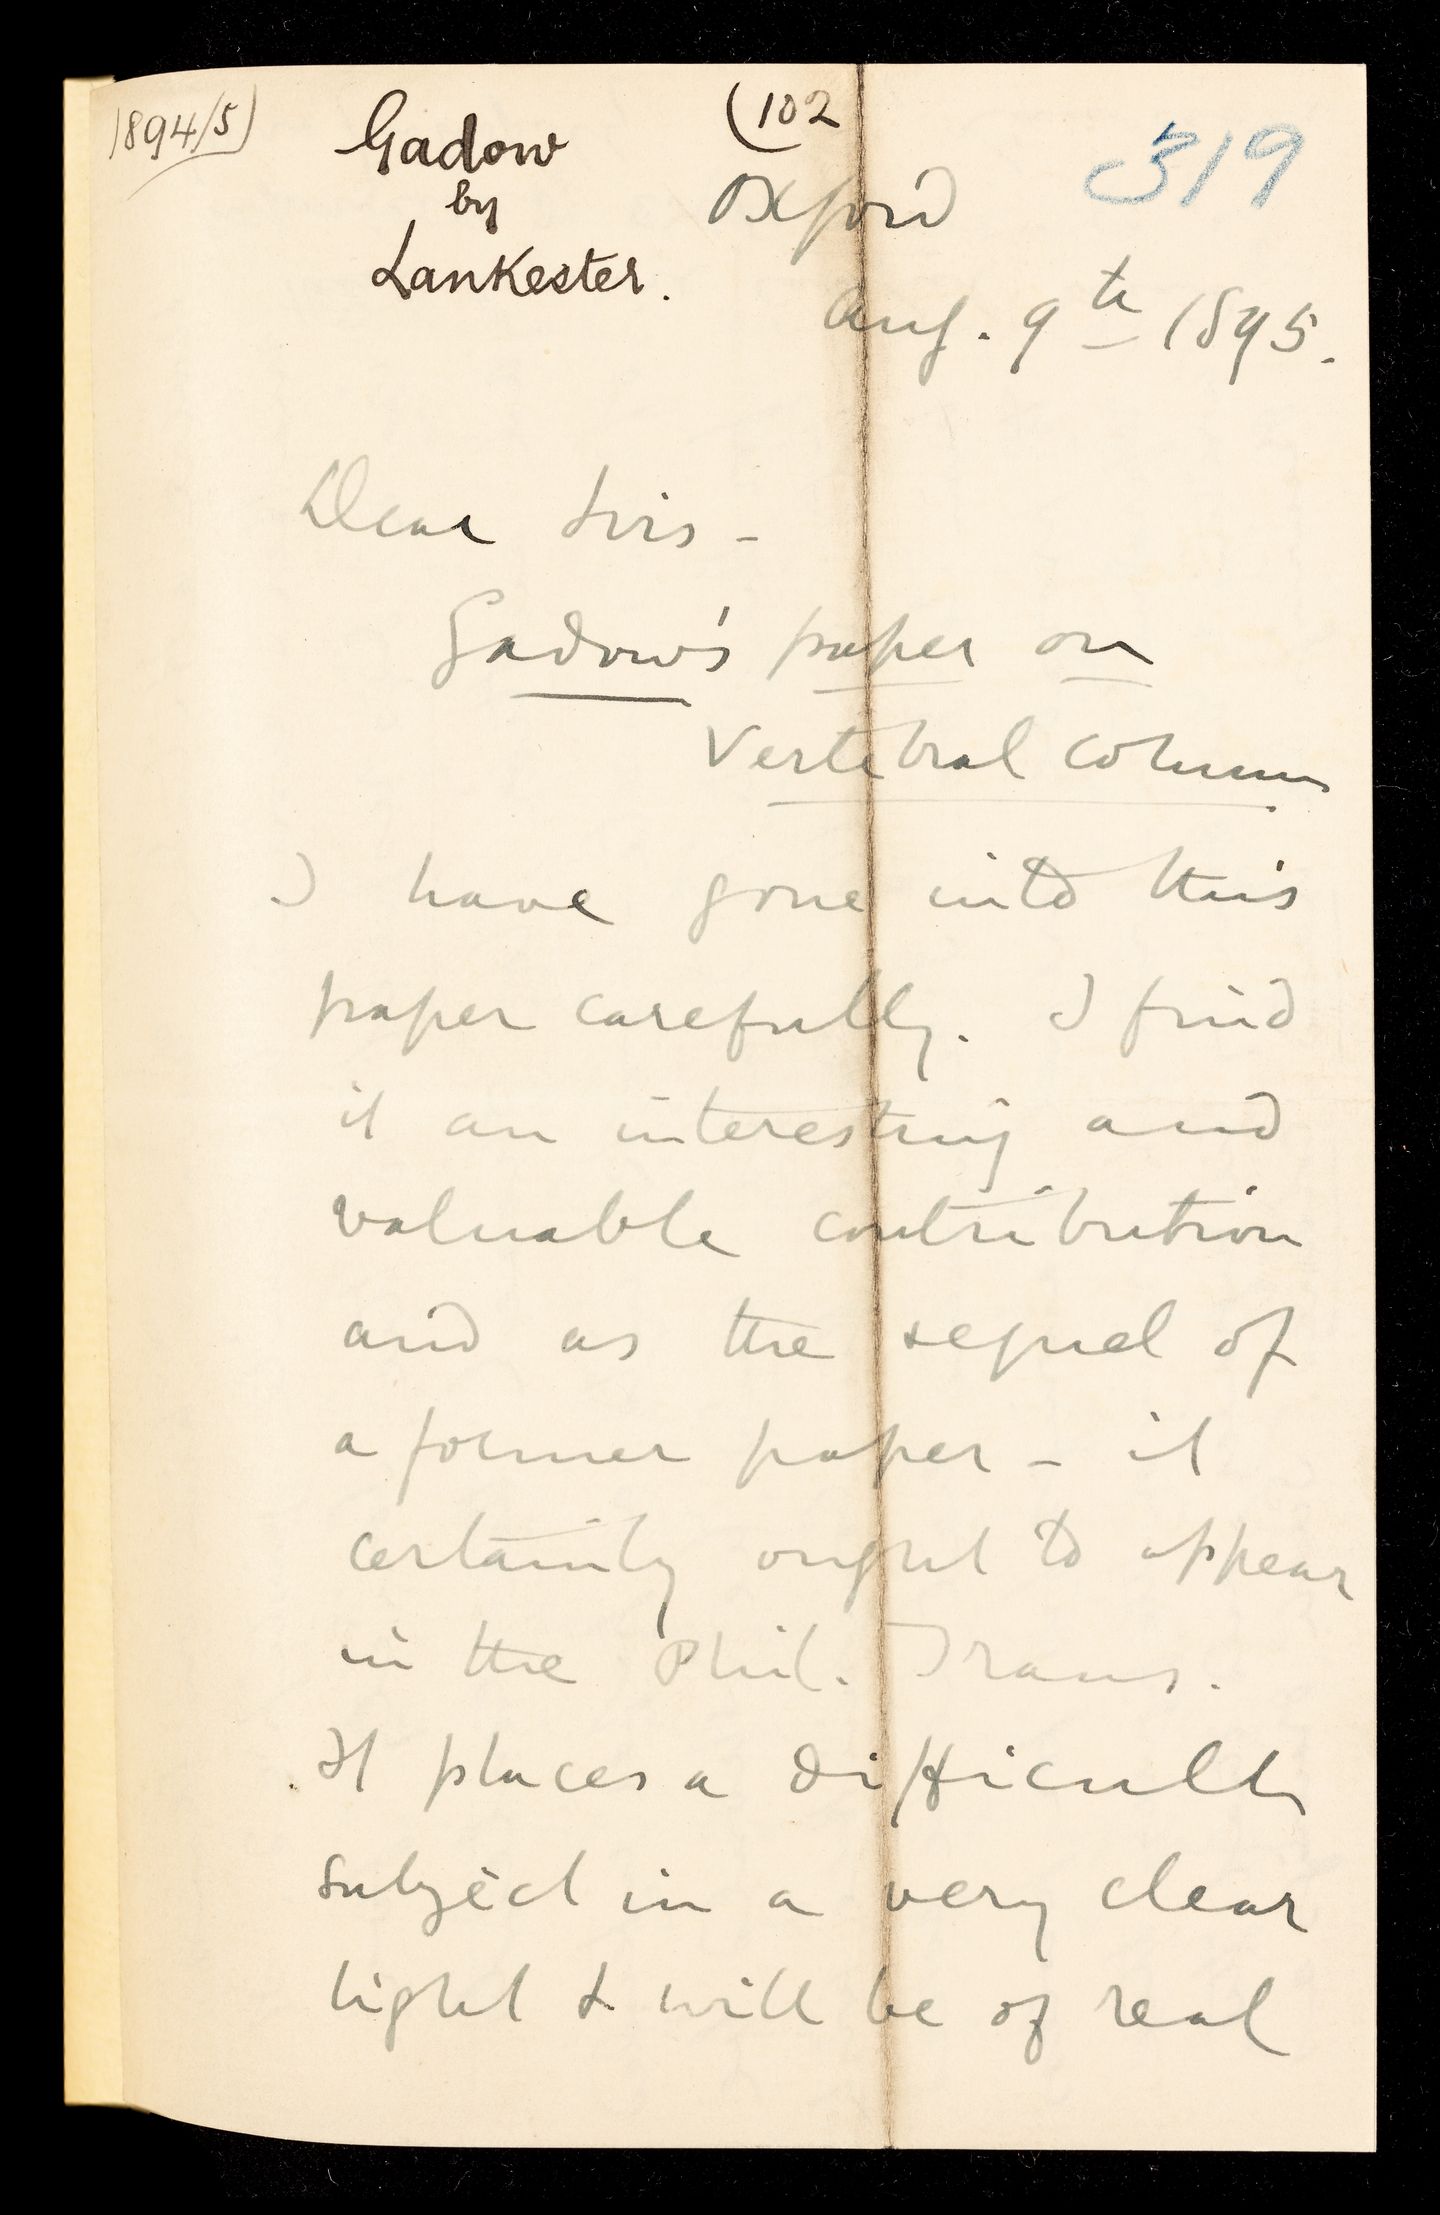 1894/5)
Gadow
by
Lankester.
(102
319
Oxford
Aug. 9th 1895.
Dear Sirs -
Gadow's paper on
Vertebral Column
I have gone into this
paper carefully. I find
it an interesting and
valuable contribution
and as the sequel of
a former paper - it
certainly ought to appear
in the Phil. Trans.
It places a difficult
subject in a very clear
light & will be of real